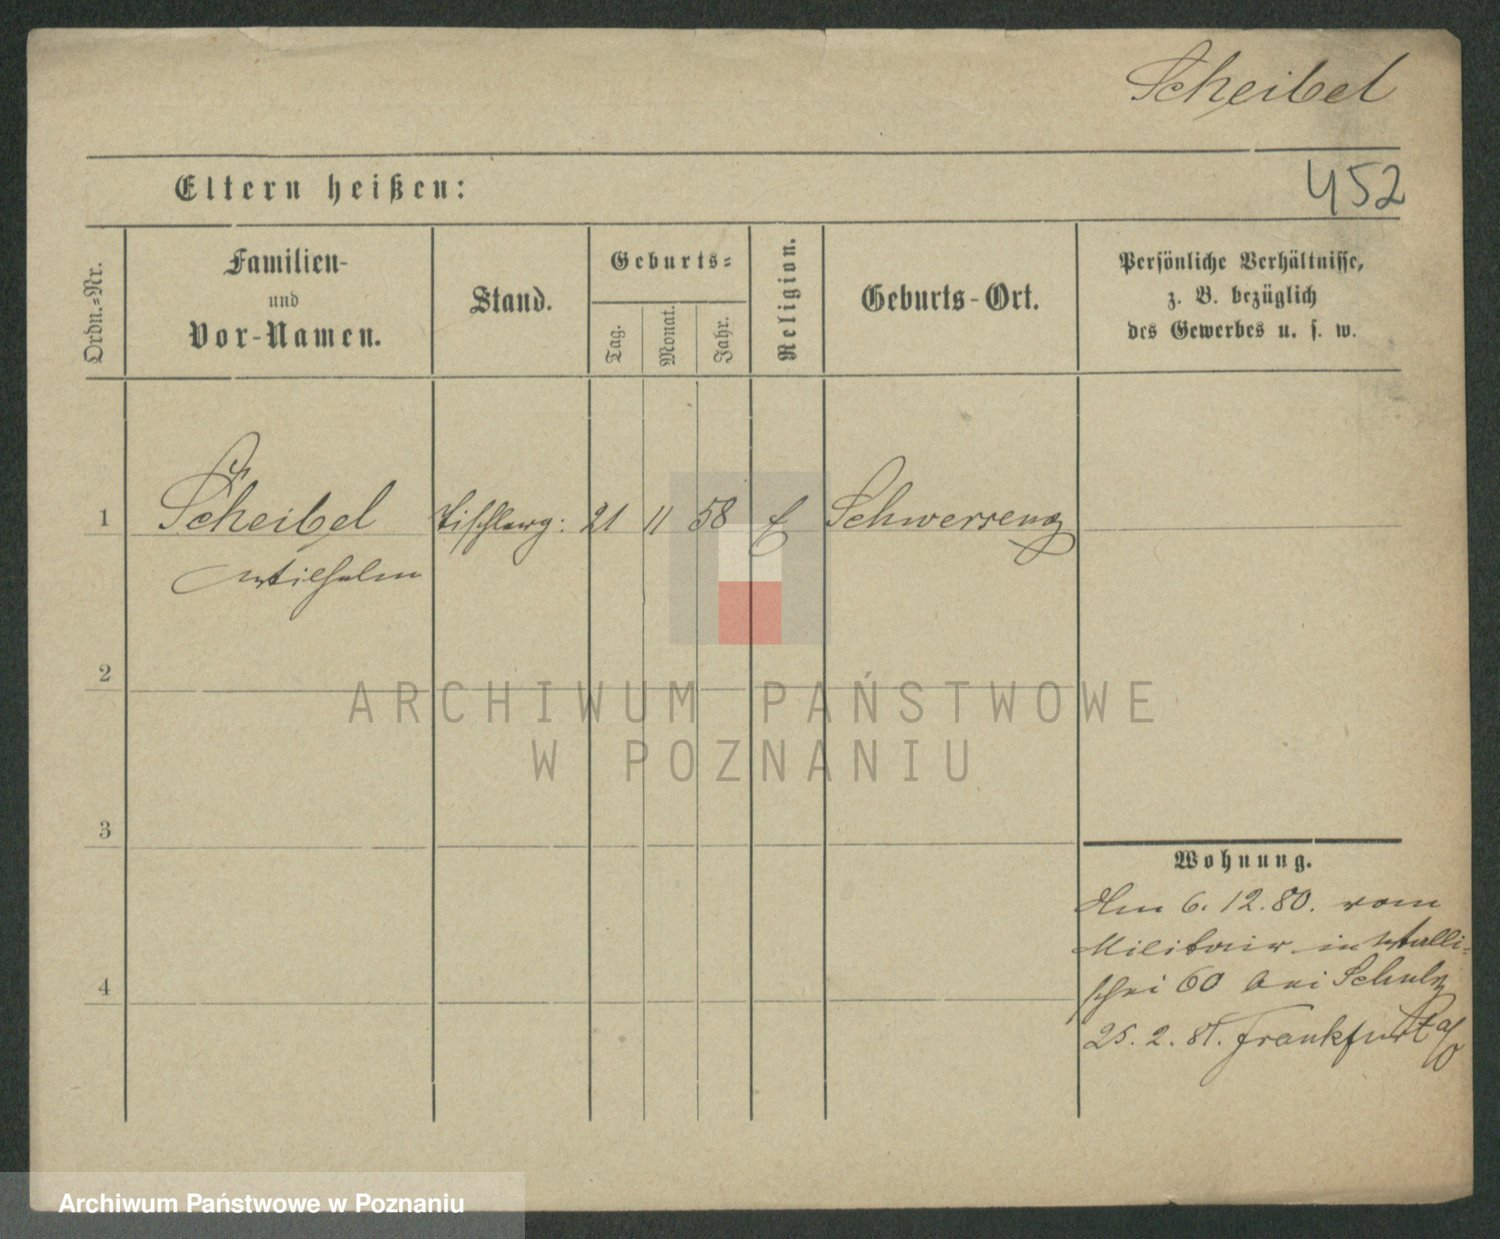 Scheibel
452
Eltern heißen:
Ordn.=Nr.
Familien-
und
Vor-Namen.
Stand.
Geburts=
Tag.
Monat.
Jahr.
Religion.
Geburts-Ort.
Persönliche Verhältnisse,
z. B. bezüglich
des Gewerbes u. s. w.
1
Scheibel
Tischlerg:
21
11
58
E
Schwersenz
Wilhelm
2
ARCHIWUM PAŃSTWOWE
W POZNANIU
3
Wohnung.
Am 6. 12. 80. vom
Militair in Walli-
schei 60 bei Schulz
4
25. 2. 81. Frankfurt a/O
Archiwum Państwowe w Poznaniu